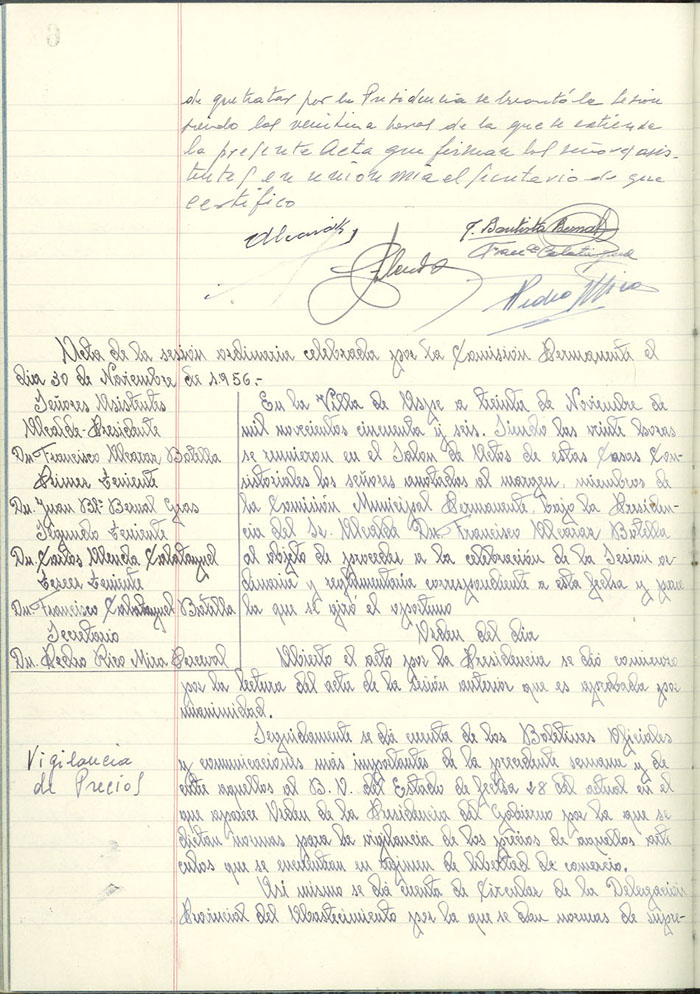 de que tratar por la Presidencia se levantó la sesion
siendo las veintiuna horas de la que se extiende
la presente Acta que firman los señores asis-
tentes en union mia el Secretario de que
certifico
J. Bautista Bernal
Franco Calatayud
Pedro Mira
Acta de la sesión ordinaria celebrada por la Comisión Permanente el
dia 30 de Noviembre de 1.956.-
Señores Asistentes
Alcalde-Presidente
Dn. Francisco Alcaraz Botella
Primer Teniente
Dn. Juan Bta. Bernal Gras
Segundo Teniente
Dn. Carlos Alenda Calatayud
Tercer Teniente
Dn. Francisco Calatayud Botella
Secretario
Dn. Pedro Rico Mira Perceval
En la Villa de Aspe a treinta de Noviembre de
mil novecientos cincuenta y seis. Siendo las veinte horas
se reunieron en el Salon de Actos de estas Casas Con-
sistoriales los señores anotados al margen, miembros de
la Comisión Municipal Permanente, bajo la Presiden-
cia del Sr. Alcalde Dn. Francisco Alcaraz Botella
al objeto de proceder a la celebración de la Sesion or-
dinaria y reglamentaria correspondiente a esta fecha y para
la que se giró el oportuno
Orden del dia
Abierto el acto por la Presidencia se dió comienzo
por la lectura del acta de la sesión anterior que es aprobada por
unanimidad.
Vigilancia
de Precios
Seguidamente se dá cuenta de los Boletines Oficiales
y comunicaciones mas importantes de la precedente semana y de
entre aquellos al B. O. del Estado de fecha 28 del actual en el
que aparece Orden de la Presidencia del Gobierno por la que se
dictan normas para la vigilancia de los precios de aquellos artí-
culos que se encuentran en régimen de libertad de comercio.
Asi mismo se dá cuenta de Circular de la Delegación
Provincial del Abastecimiento por la que se dan normas de supre-